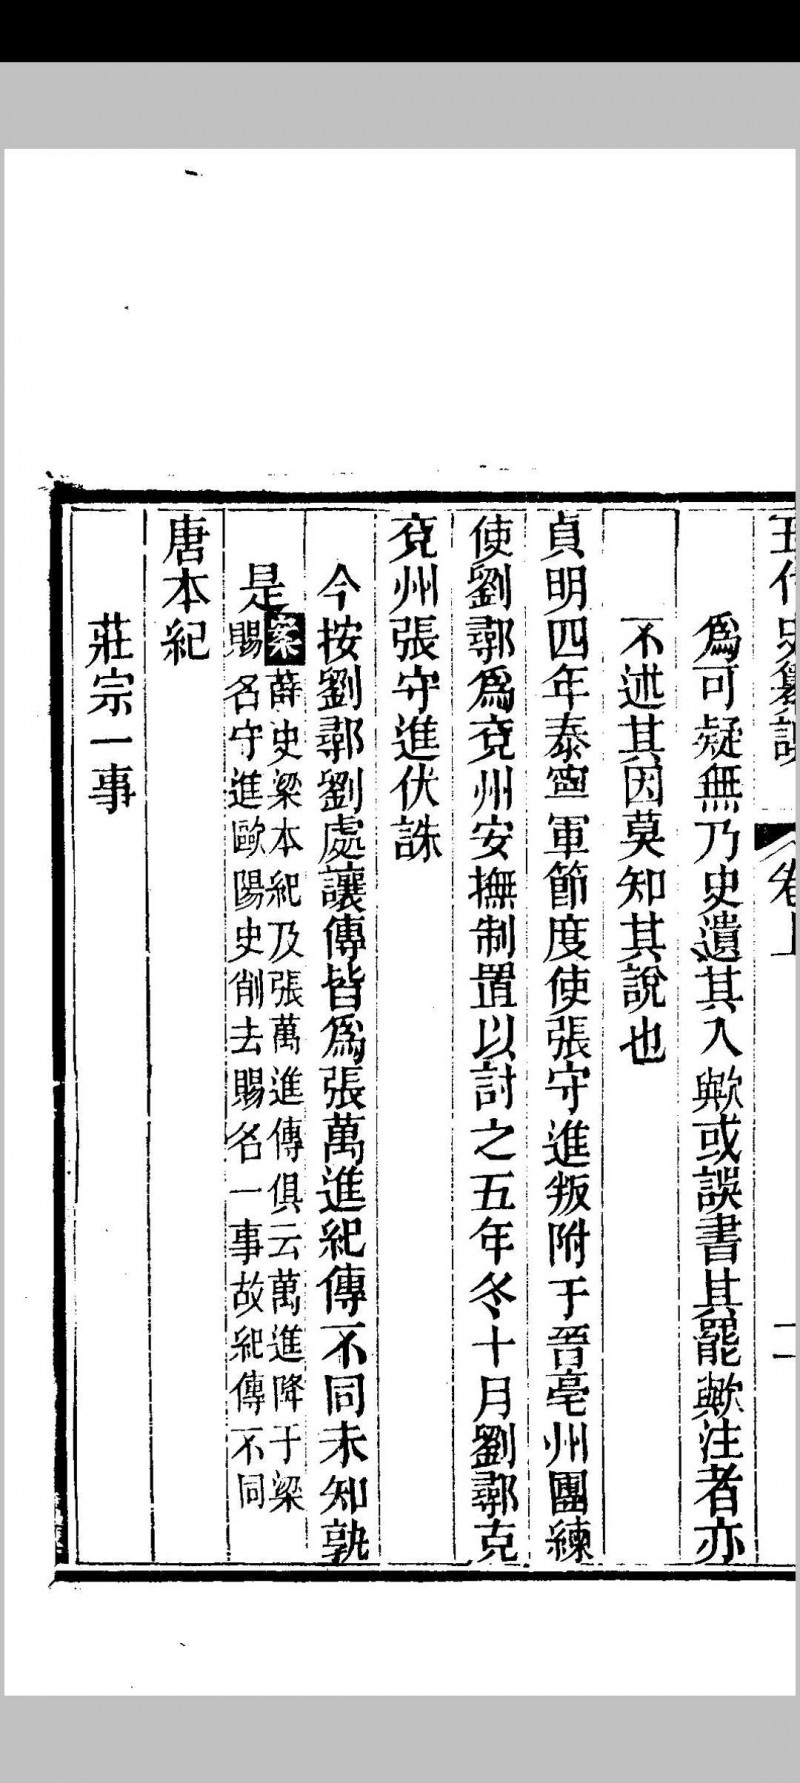 五代史纂誤 卷上 二
爲可疑無乃史遺其人歟或誤書其罷歟注者亦
不述其因莫知其說也
貞明四年泰寧軍節度使張守進叛附于晉亳州團練
使劉鄩爲兗州安撫制置以討之五年冬十月劉鄩克
兗州張守進伏誅
今按劉鄩劉處讓傳皆爲張萬進紀傳不同未知孰
是案薛史梁本紀及張萬進傳俱云萬進降于梁
賜名守進歐陽史削去賜名一事故紀傳不同
唐本紀
莊宗一事